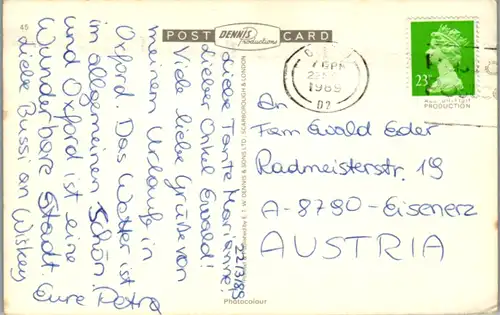 45
POST CARD
DENNIS
Productions
22/3/89
Liebe Tante Marianne,
lieber Onkel Ewald!
Viele liebe Grüße von
meinem Urlaub in
Oxford. Das Wetter ist
im allgemeinen schön
und Oxford ist eine
wunderbare Stadt.
Eure Petra
dicke Bussi an Wiskey
by E. T. W. DENNIS & SONS LTD · SCARBOROUGH & LONDON
Photocolour
1989
23
PRODUCTION
An
Fam Ewald Eder
Radmeisterstr. 19
A-8790-Eisenerz
AUSTRIA